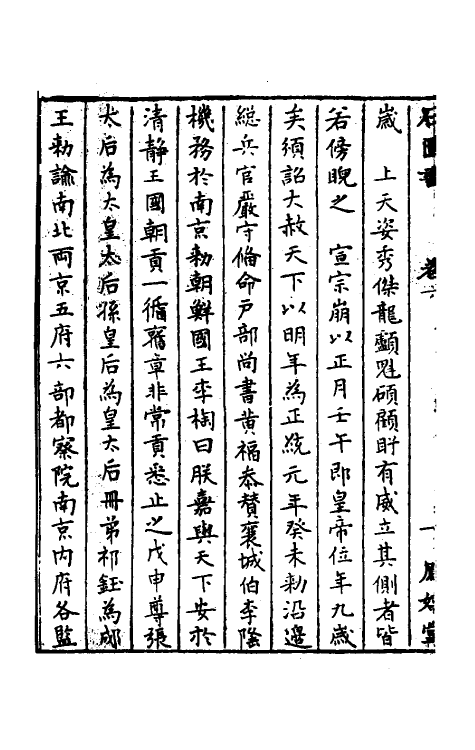 石匱書 卷六 一 鳳嬉堂
歲 上天姿秀傑龍顱魁碩顧盻有威立其側者皆
若傍睨之 宣宗崩以正月壬午即皇帝位年九歲
矣頒詔大赦天下以明年為正統元年癸未勑沿邊
總兵官嚴守備命戶部尚書黄福叅賛襄城伯李隆
機務於南京勑朝鮮國王李裪曰朕嘉與天下安於
清静王國朝貢一循舊章非常貢悉止之戊申尊張
太后為太皇太后孫皇后為皇太后冊弟祁鈺為郕
王勑諭南北両京五府六部都察院南京内府各監